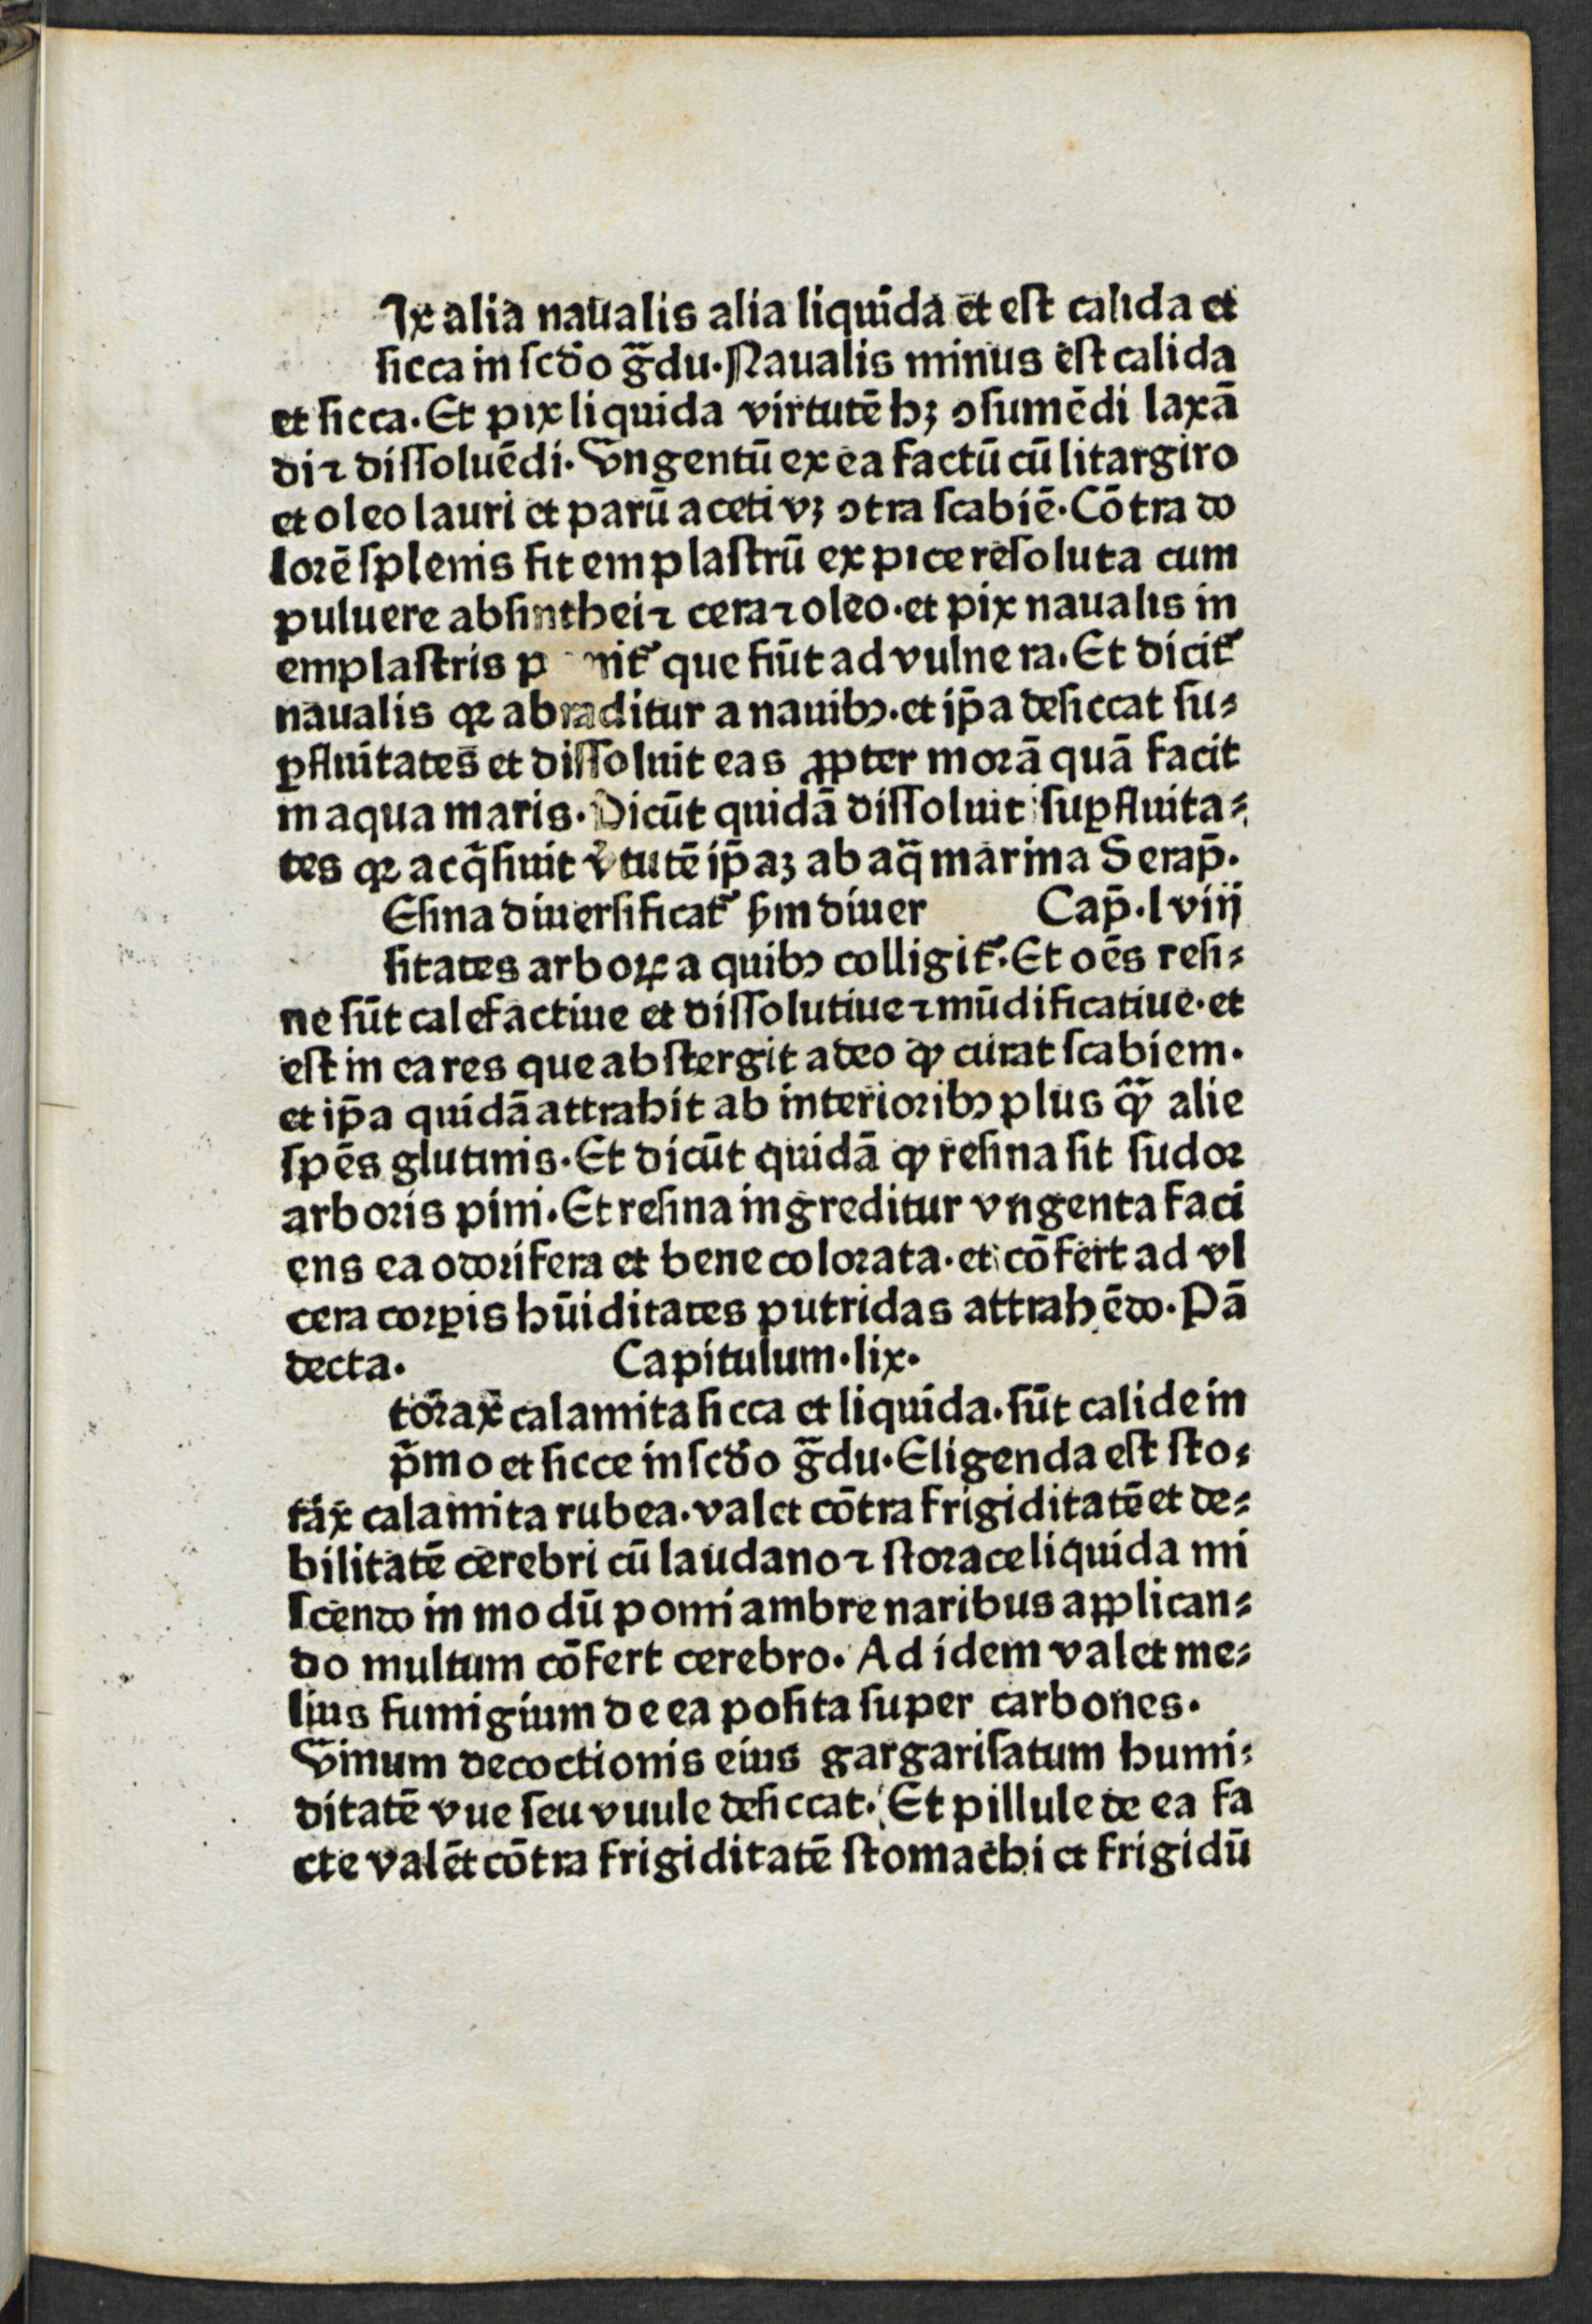 Ix alia naualis alia liquida et est calida et
sicca in scđo g̃du. Naualis minus est calida
et sicca. Et pix liquida virtutē hꝫ ↄsumēdi laxā
di⁊ dissoluēdi. Vngentū ex ea factū cū litargiro
et oleo lauri et parū aceti vꝫ ↄtra scabiē. Cōtra do
lorē splenis fit emplastrū ex pice resoluta cum
puluere absinthei⁊ cera⁊ oleo. et pix naualis in
emplastris que fiūt ad vulnera. Et dicit᷑
naualis qꝛ abraditur a nauibꝰ. et ip̄a desiccat su⸗
ꝑfluitates et dissoluit eas ꝓpter morā quā facit
in aqua maris. Dicūt quidā dissoluit suꝑfluita⸗
tes qꝛ acq̄siuit v̓tutē ip̄aꝫ ab aq̄ marina Serap̄.
Esina diuersificat᷑ ẜm diuer Cap̄. lviij
sitates arboꝝ a quibꝰ colligit᷑. Et oēs resi⸗
ne sūt calefactiue et dissolutiue ⁊ mūdificatiue. et
est in ea res que abstergit adeo ꝙ curat scabiem.
et ip̄a quidā attrahit ab interioribꝰ plus ꝙ̃ alie
spēs glutinis. Et dicūt quidā ꝙ resina sit sudor
arboris pini. Et resina ingreditur vngenta faci
ens ea odorifera et bene colorata. et cōfert ad vl
cera corꝑis hūiditates putridas attrahēdo. Pā
decta. Capitulum. lix.
torax calamita sicca et liquida. sūt calide in
p̄mo et sicce in scđo g̃du. Eligenda est sto⸗
rax calamita rubea. valet cōtra frigiditatē et de⸗
bilitatē cerebri cū laudano ⁊ storace liquida mi
scendo in modū pomi ambre naribus applican⸗
do multum cōfert cerebro. Ad idem valet me⸗
lius fumigium de ea posita super carbones.
Vinum decoctionis eius gargarisatum humi⸗
ditatē vue seu vuule desiccat. Et pillule de ea fa
cte valēt cōtra frigiditatē stomachi et frigidū